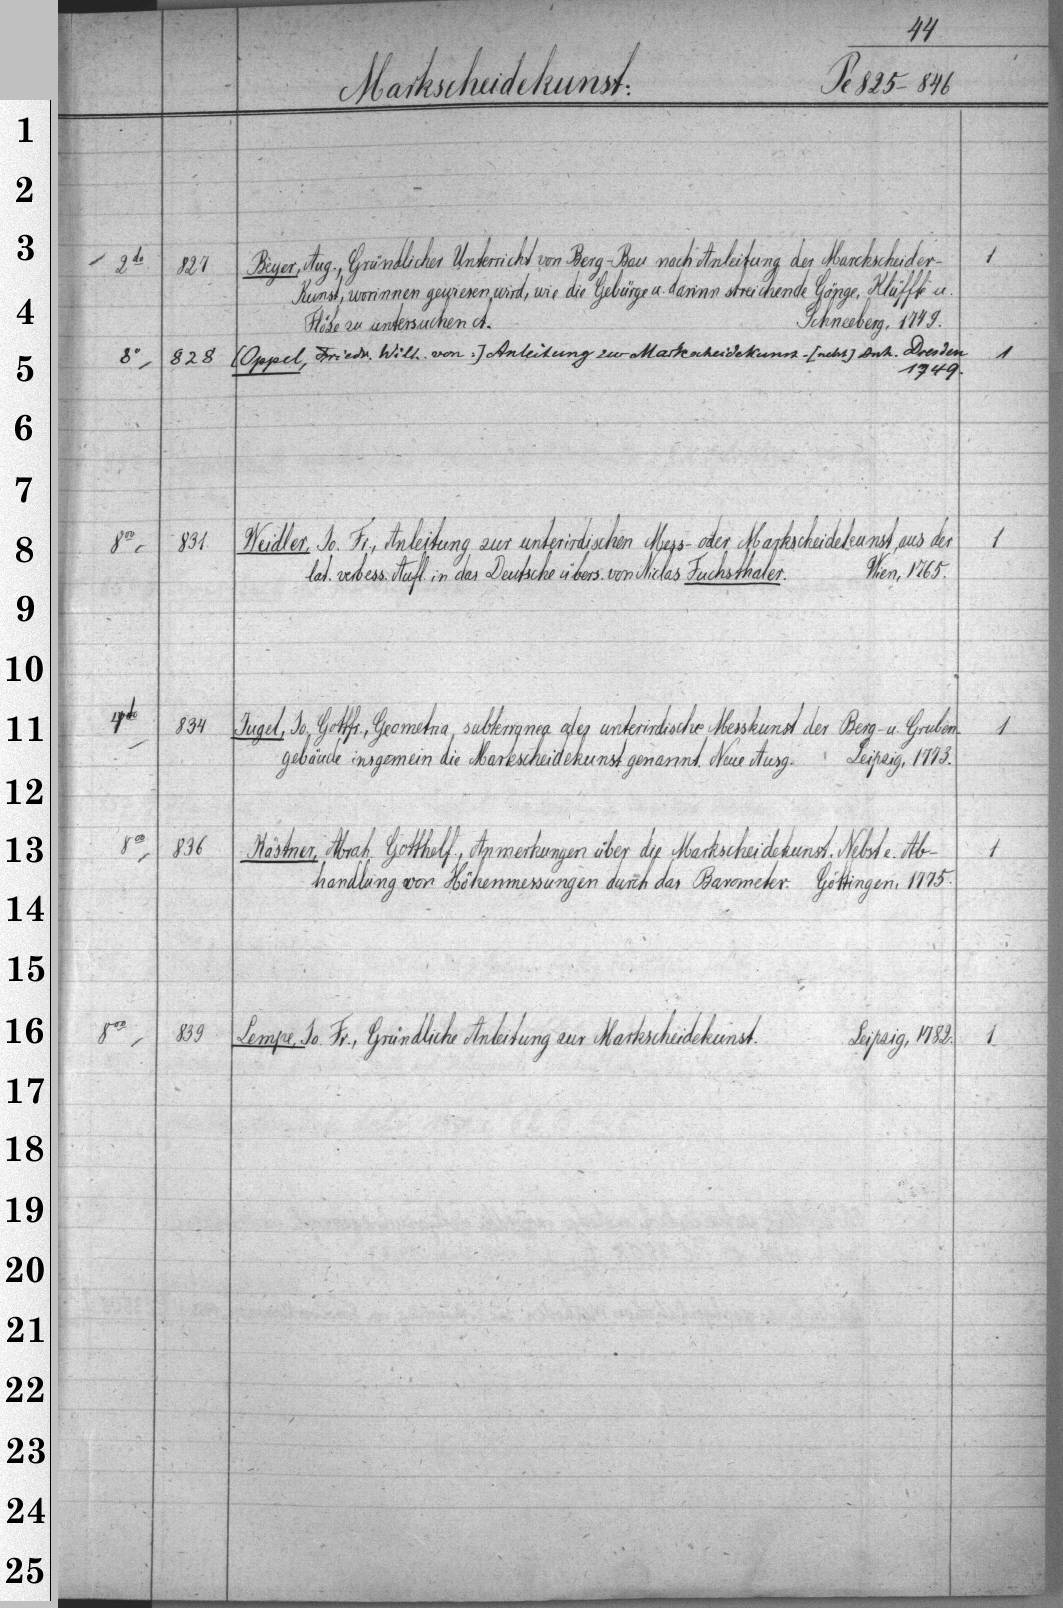 44
Markscheidekunst: Pe 825-846
1
2
3
2do 827 Beyer, Aug., Gründlicher Unterricht von Berg-Bau nach Anleitung der Marckscheider- 1
Kunst, worinnen gewiesen wird, wie die Gebürge u. darinn streichende Gänge, Klüffte u.
4
Flöze zu untersuchen ct. Schneeberg, 1749.
8° 828 [Oppel, Friedr. Wilh. von:] Anleitung zur Markscheidekunst - [nebst] Anh. Dresden 1
5
1749.
6
7
8vo 831 Weidler, Jo. Fr., Anleitung zur unterirdischen Mess- oder Markscheidekunst, aus der 1
8
lat. verbess. Aufl. in das Deutsche übers. von Niclas Fuchsthaler. Wien, 1765.
9
10
4to 834 Jugel, Jo. Gottfr., Geometria subterranea oder unterirdische Messkunst der Berg- u. Gruben 1
11
gebäude insgemein die Markscheidekunst genannt. Neue Ausg. Leipzig, 1773.
12
8vo 836 Kästner, Abrah. Gotthelf, Anmerkungen über die Markscheidekunst. Nebst e. Ab- 1
13
handlung von Höhenmessungen durch das Barometer. Göttingen, 1775.
14
15
16
8vo 839 Lempe, Jo. Fr., Gründliche Anleitung zur Markscheidekunst. Leipzig, 1782. 1
17
18
19
20
21
22
23
24
25